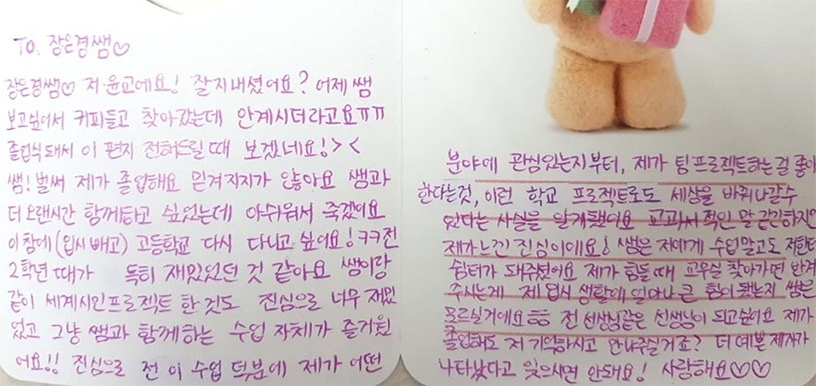 TO. 장은경쌤♡
장은경쌤♡ 저 윤교에요! 잘지내셨어요? 어제 쌤
보고싶어서 커피들고 찾아갔는데 안계시더라고요ㅠㅠ
졸업식 돼서 이 편지 전해드릴 때 보겠네요!><
쌤! 벌써 제가 졸업해요 믿겨지지가 않아요 쌤과
더 오랜시간 함께하고 싶었는데 아쉬워서 죽겠어요
이참에 (입시 빼고) 고등학교 다시 다니고 싶어요! ㅋㅋ전
2학년 때가 특히 재밌었던 것 같아요 쌤이랑
같이 세계시민프로젝트 한 것도 진심으로 너무 재밌
었고 그냥 쌤과 함께하는 수업 자체가 즐거웠
어요!! 진심으로 전 이 수업 덕분에 제가 어떤
분야에 관심있는지부터, 제가 팀프로젝트하는 걸 좋아
한다는것, 이런 학교 프로젝트로도 세상을 바꿔나갈수
있다는 사실을 알게됐어요 교과서적인 말 같긴하지만
제가느낀 진심이에요! 쌤은 저에게 수업말고도 저한테
쉼터가 돼주셨어요 제가 힘들 때 교무실 찾아가면 반겨
주시는게 제 입시 생활에 얼마나 큰 힘이 됐는지 쌤은
모르실거에요ㅎㅎ 전 선생님같은 선생님이 되고싶어요 제가
졸업해도 저 기억하시고 만나주실거죠? 더 예쁜 제자가
나타났다고 잊으시면 안돼요! 사랑해요♡♡